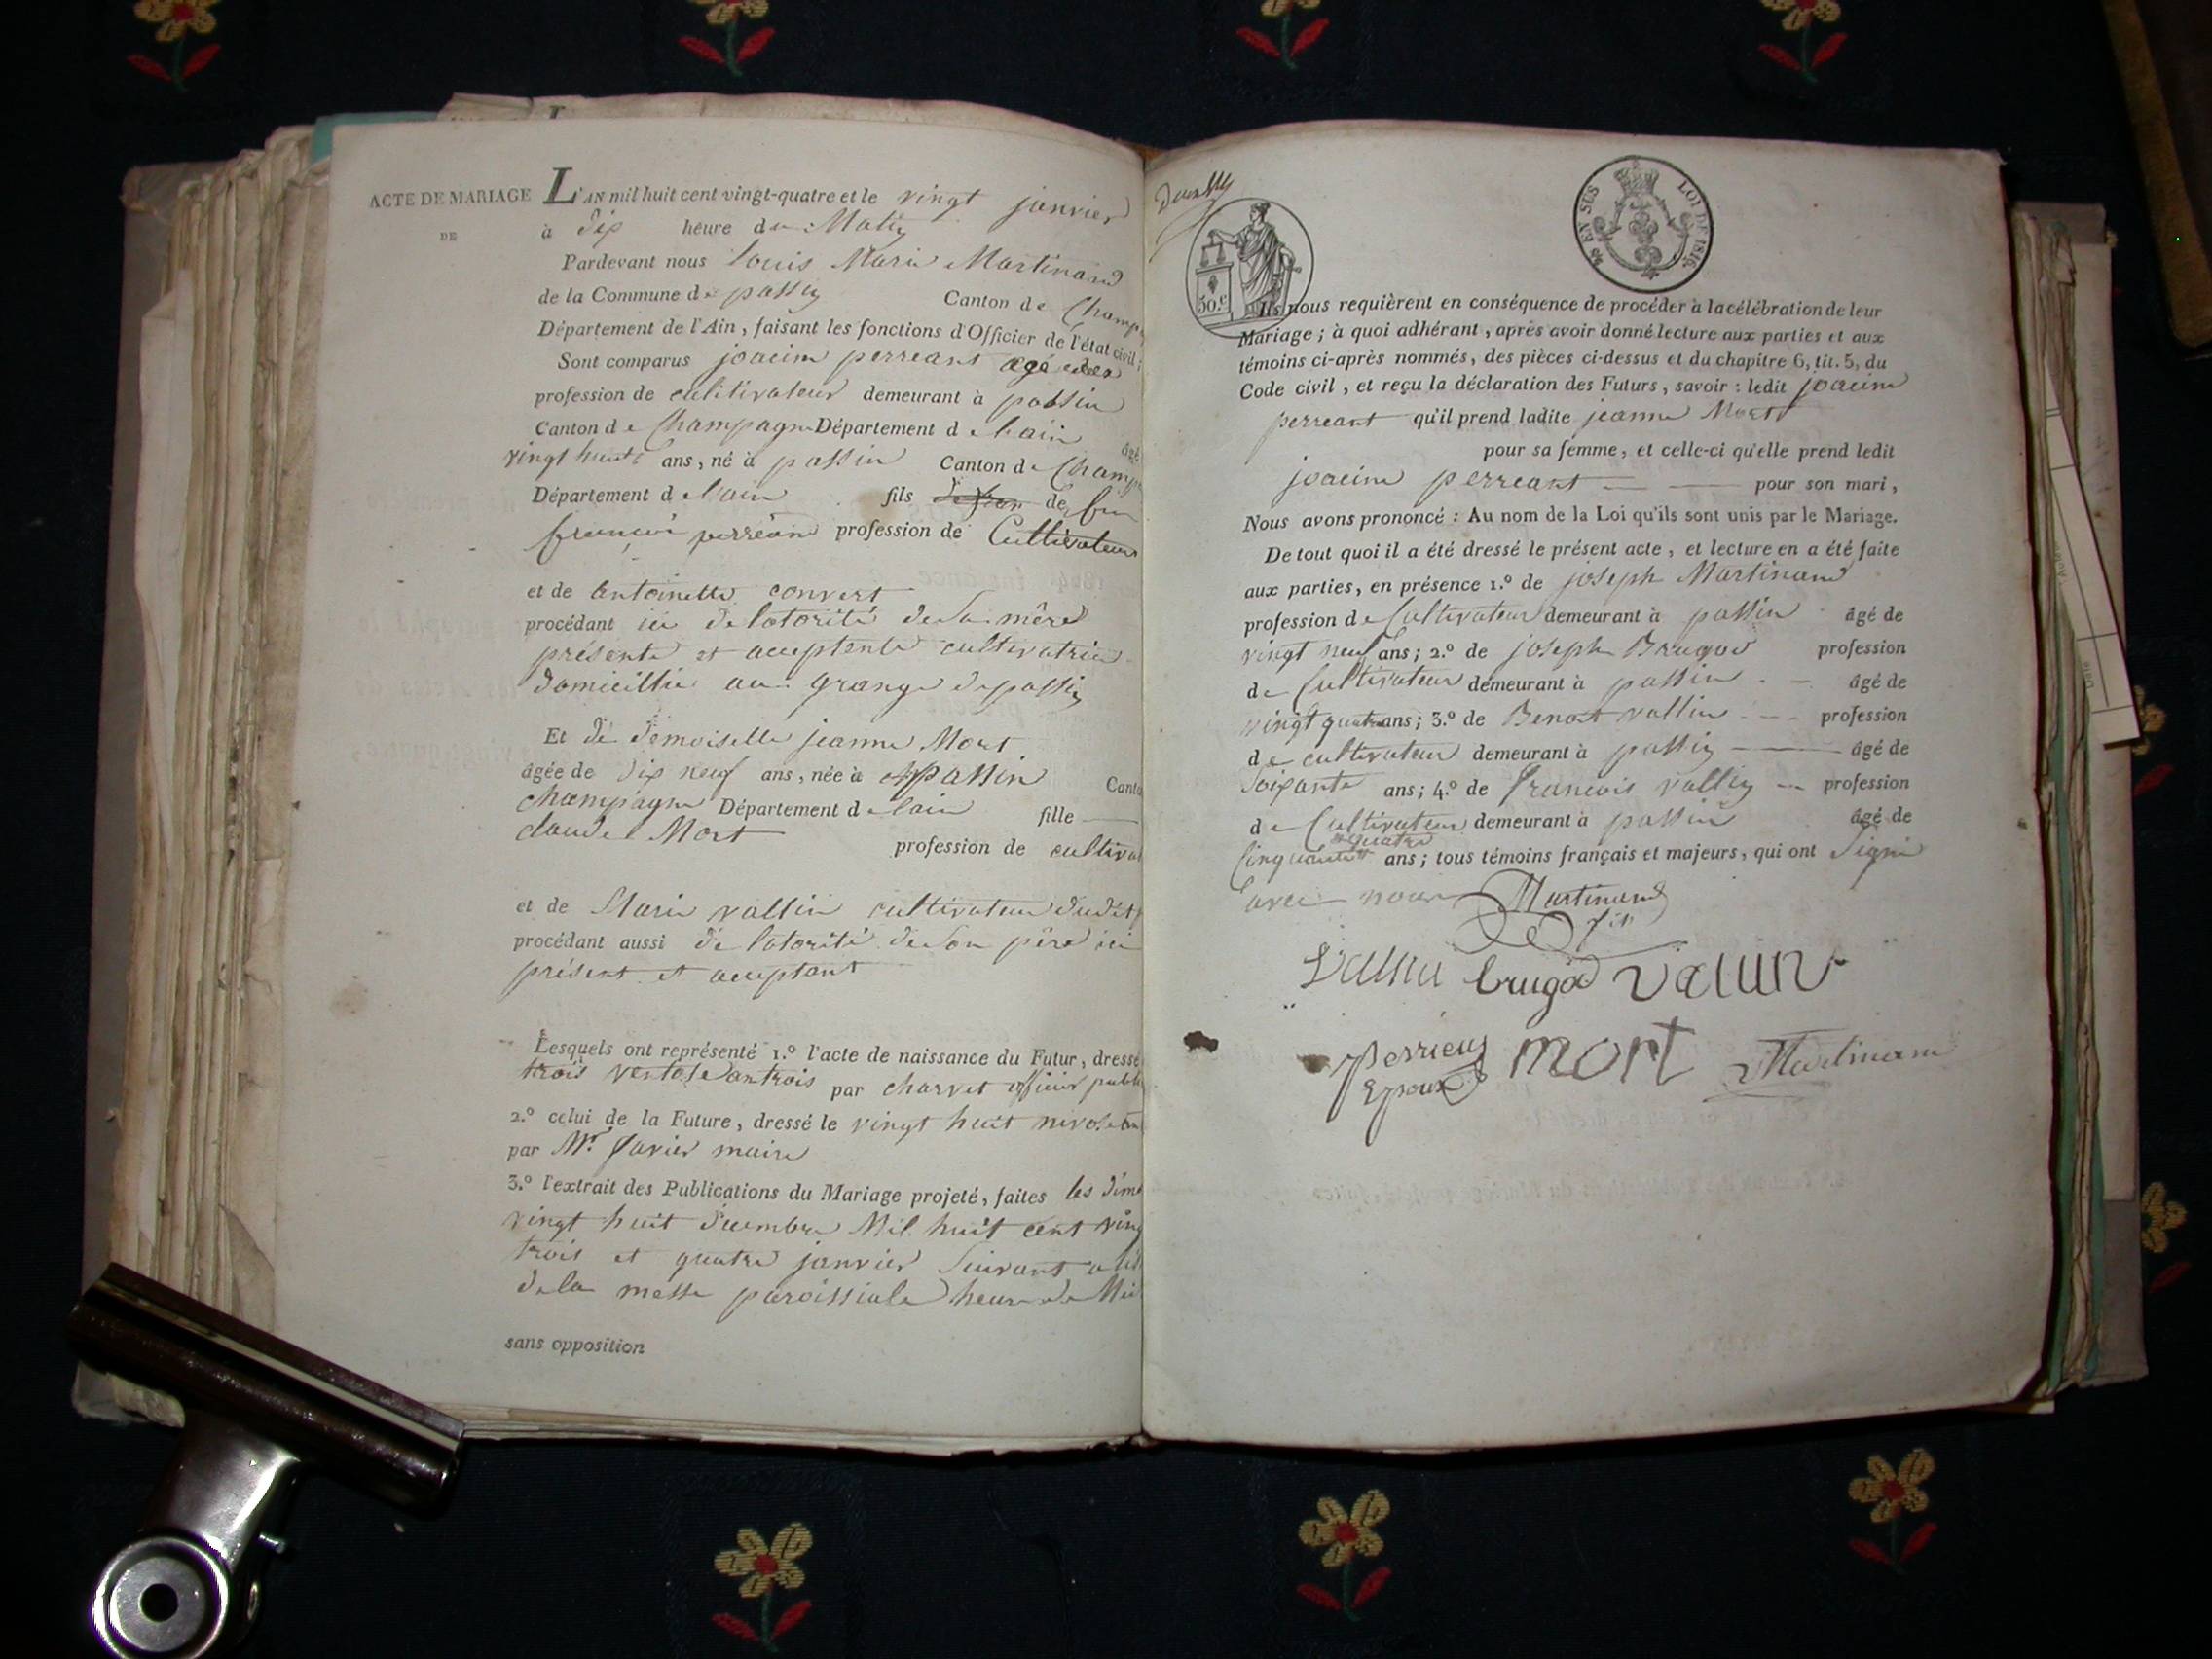 ACTE DE MARIAGE
DE
L'AN mil huit cent vingt-quatre et le vingt janvier
à dix heure du Matin
Pardevant nous Louis Marie Martinand
de la Commune de passin Canton de Champ
Département de l'Ain, faisant les fonctions d'Officier de l'état civil;
Sont comparus joacim perreant agé
profession de cultivateur demeurant à passin
Canton de Champagne Département de lain âgé
vingt huit ans, né à passin Canton de Champ
Département de lain fils de feu
françois perréan profession de Cultivateur
et de antoinette convert
procédant ici de lotorité de Sa mère
présente et acceptente cultivatrice
domicillié au grange de passin
Et de demoiselle jeanne Mort
âgée de dix neuf ans, née à passin Canto
champagne Département de lain fille
claude Mort profession de cultivat
et de Marie vallin cultivateur dudit
procédant aussi de lotorité de Son père ici
présent et acceptant
Lesquels ont représenté 1.º l'acte de naissance du Futur, dressé
trois ventose an trois par charvet officier publi
2.º celui de la Future, dressé le vingt huit nivose an
par Mr. favier maire
3.º l'extrait des Publications du Mariage projeté, faites les dim
vingt huit décembre Mil huit cent ving
trois et quatre janvier Suivant a
de la messe paroissiale heure de Mi
sans opposition
50.c
EN SUS
LOI DE 1816
Ils nous requièrent en conséquence de procéder à la célébration de leur
Mariage; à quoi adhérant, après avoir donné lecture aux parties et aux
témoins ci-après nommés, des pièces ci-dessus et du chapitre 6, tit. 5, du
Code civil, et reçu la déclaration des Futurs, savoir: ledit joacim
perreant qu'il prend ladite jeanne Mort
pour sa femme, et celle-ci qu'elle prend ledit
joacim perreant pour son mari,
Nous avons prononcé: Au nom de la Loi qu'ils sont unis par le Mariage.
De tout quoi il a été dressé le présent acte, et lecture en a été faite
aux parties, en présence 1.º de joseph Martinand
profession de Cultivateur demeurant à passin âgé de
vingt neuf ans; 2.º de joseph Brugod profession
de Cultivateur demeurant à passin âgé de
vingt quatre ans; 3.º de Benoit vallin profession
de cultivateur demeurant à passin âgé de
Soixante ans; 4.º de francois vallin profession
de Cultivateur demeurant à passin âgé de
quatre
Cinquante ans; tous témoins français et majeurs, qui ont Signé
avec nous Martinand
fils
Vallin brugod valin
perrieus mort Martinand
Epoux